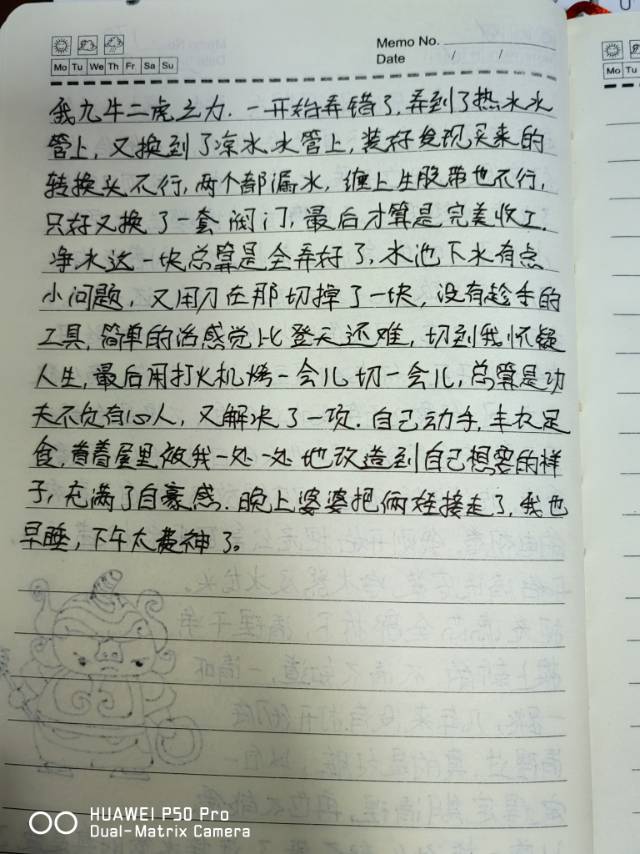 Memo No.
Date / /
Mo Tu We Th Fr Sa Su
Mo Tu
我九牛二虎之力.一开始弄错了,弄到了热水水
管上,又换到了凉水水管上,装好发现买来的
转换头不行,两个都漏水,缠上生胶带也不行,
只好又换了一套阀门,最后才算是完美收工.
净水这一块总算是全弄好了,水池下水有点
小问题,又用刀在那切掉了一块,没有趁手的
工具,简单的活感觉比登天还难,切到我怀疑
人生,最后用打火机烤一会儿切一会儿,总算是功
夫不负有心人,又解决了一项.自己动手,丰衣足
食,看着屋里被我一处一处地改造到自己想要的样
子,充满了自豪感.晚上婆婆把俩娃接走了,我也
早睡,下午太费神了。
HUAWEI P50 Pro
Dual-Matrix Camera